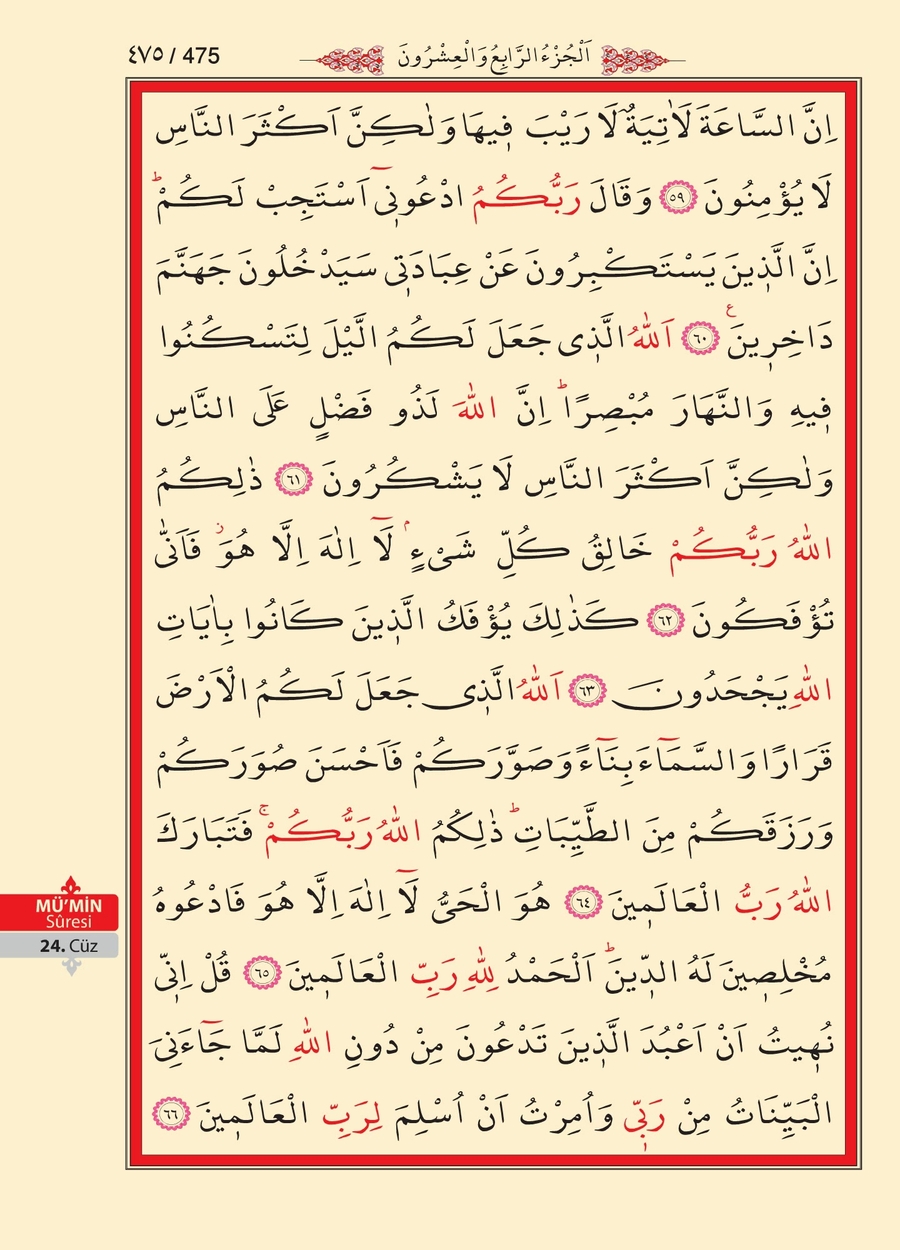 ٤٧٥ / 475
اَلْجُزْءُ الرَّابِعُ وَالْعِشْرُونَ
اِنَّ السَّاعَةَ لَاٰتِيَةٌ لَا رَيْبَ ف۪يهَا وَلٰكِنَّ اَكْثَرَ النَّاسِ
لَا يُؤْمِنُونَ ﴿٥٩﴾ وَقَالَ رَبُّكُمُ ادْعُون۪ٓي اَسْتَجِبْ لَكُمْۜ
اِنَّ الَّذ۪ينَ يَسْتَكْبِرُونَ عَنْ عِبَادَت۪ي سَيَدْخُلُونَ جَهَنَّمَ
دَاخِر۪ينَ۟ ﴿٦٠﴾ اَللّٰهُ الَّذ۪ي جَعَلَ لَكُمُ الَّيْلَ لِتَسْكُنُوا
ف۪يهِ وَالنَّهَارَ مُبْصِرًاۜ اِنَّ اللّٰهَ لَذُو فَضْلٍ عَلَى النَّاسِ
وَلٰكِنَّ اَكْثَرَ النَّاسِ لَا يَشْكُرُونَ ﴿٦١﴾ ذٰلِكُمُ
اللّٰهُ رَبُّكُمْ خَالِقُ كُلِّ شَيْءٍۢ لَٓا اِلٰهَ اِلَّا هُوَۘ فَاَنّٰى
تُؤْفَكُونَ ﴿٦٢﴾ كَذٰلِكَ يُؤْفَكُ الَّذ۪ينَ كَانُوا بِاٰيَاتِ
اللّٰهِ يَجْحَدُونَ ﴿٦٣﴾ اَللّٰهُ الَّذ۪ي جَعَلَ لَكُمُ الْاَرْضَ
قَرَارًا وَالسَّمَٓاءَ بِنَٓاءً وَصَوَّرَكُمْ فَاَحْسَنَ صُوَرَكُمْ
وَرَزَقَكُمْ مِنَ الطَّيِّبَاتِۜ ذٰلِكُمُ اللّٰهُ رَبُّكُمْۚ فَتَبَارَكَ
اللّٰهُ رَبُّ الْعَالَم۪ينَ ﴿٦٤﴾ هُوَ الْحَيُّ لَٓا اِلٰهَ اِلَّا هُوَ فَادْعُوهُ
مُخْلِص۪ينَ لَهُ الدّ۪ينَۜ اَلْحَمْدُ لِلّٰهِ رَبِّ الْعَالَم۪ينَ ﴿٦٥﴾ قُلْ اِنّ۪ي
نُه۪يتُ اَنْ اَعْبُدَ الَّذ۪ينَ تَدْعُونَ مِنْ دُونِ اللّٰهِ لَمَّا جَٓاءَنِيَ
الْبَيِّنَاتُ مِنْ رَبّ۪ي وَاُمِرْتُ اَنْ اُسْلِمَ لِرَبِّ الْعَالَم۪ينَ ﴿٦٦﴾
MÜ'MİN
Sûresi
24. Cüz